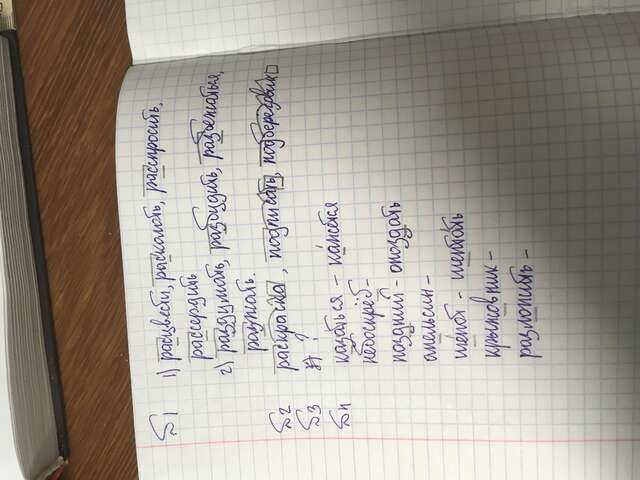 №1 1) расцвести, расколоть, расспросить,
рассердить
2) раздумать, разбудить, разбежаться,
разжать.
№2 раскраска, подписать, подберезовик
№3 ?
№4 казаться - кажется
небоскрёб -
поздний - опоздать
апельсин -
шёпот - шептать
крыжовник -
разлопить -